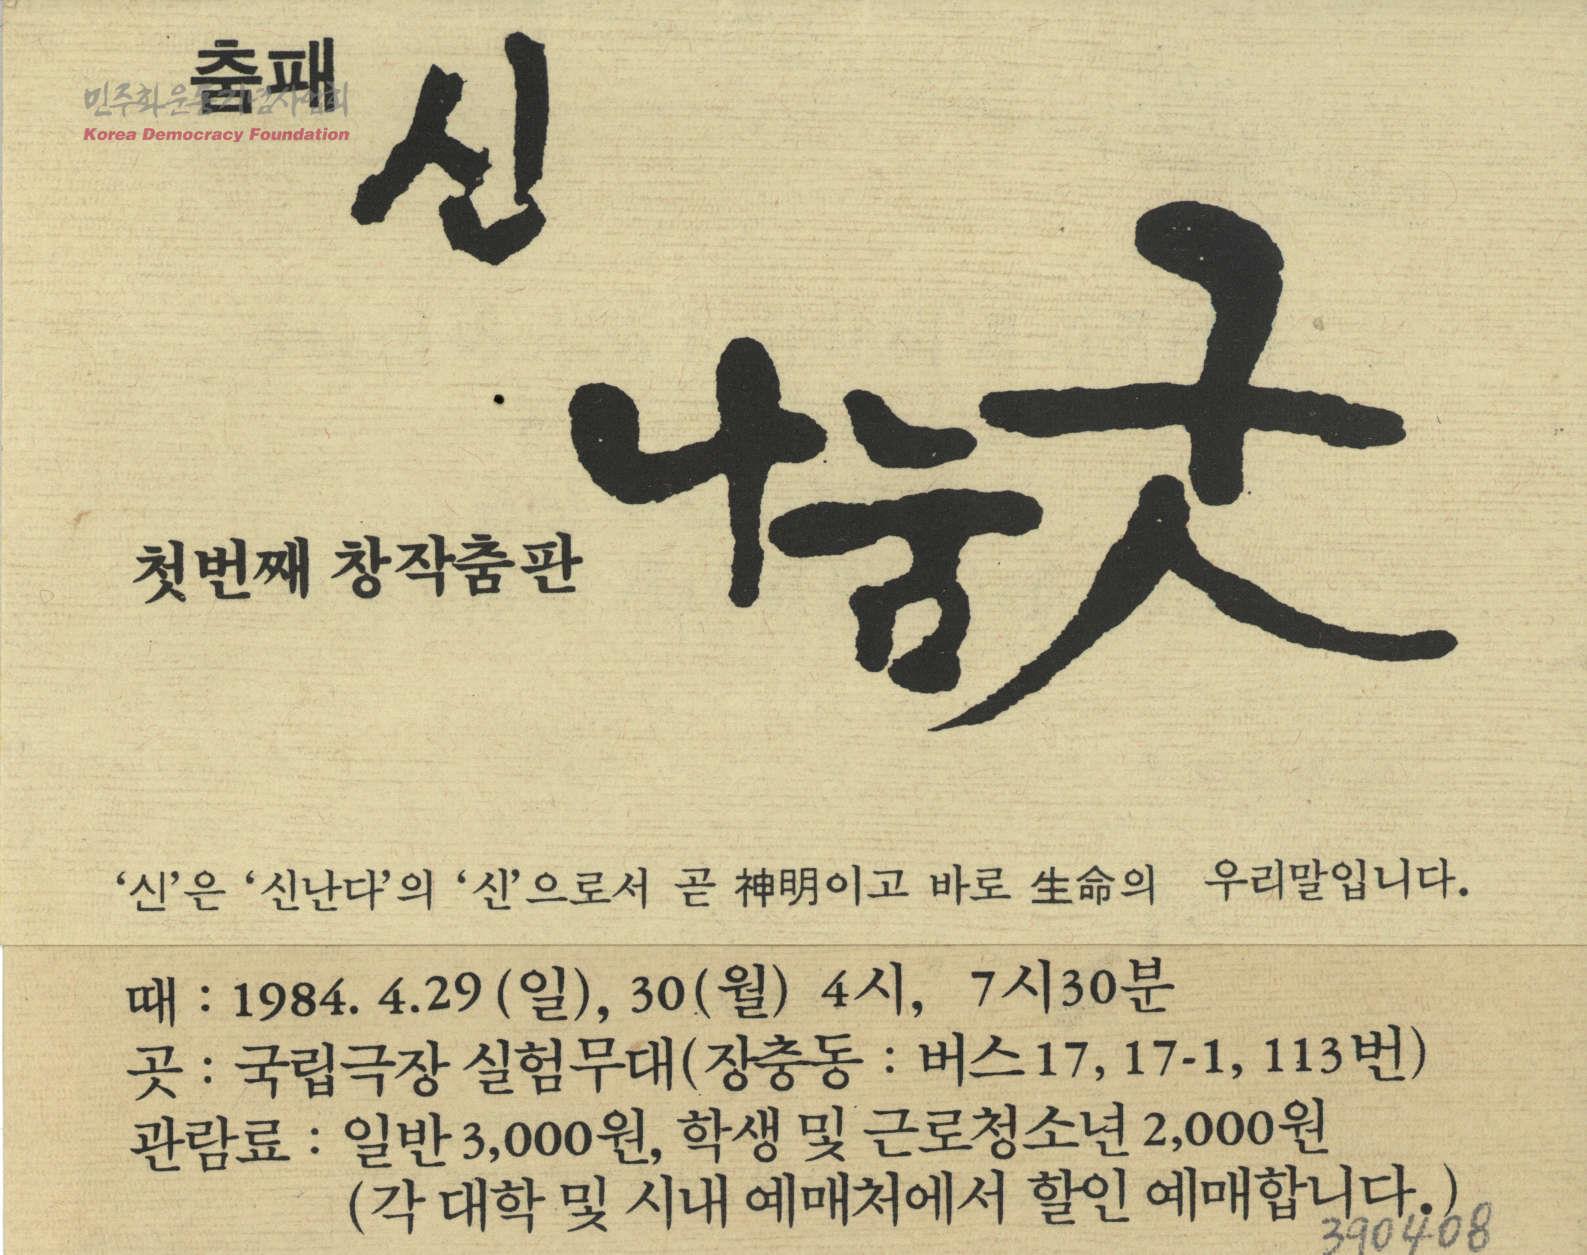 춤패 신
민주화운동기념사업회
Korea Democracy Foundation
나눔굿
첫번째 창작춤판
‘신’은 ‘신난다’의 ‘신’으로서 곧 神明이고 바로 生命의 우리말입니다.
때 : 1984. 4.29 (일), 30(월) 4시, 7시30분
곳 : 국립극장 실험무대(장충동 : 버스17, 17-1, 113번)
관람료 : 일반 3,000원, 학생 및 근로청소년 2,000원
(각 대학 및 시내 예매처에서 할인 예매합니다.)
390408